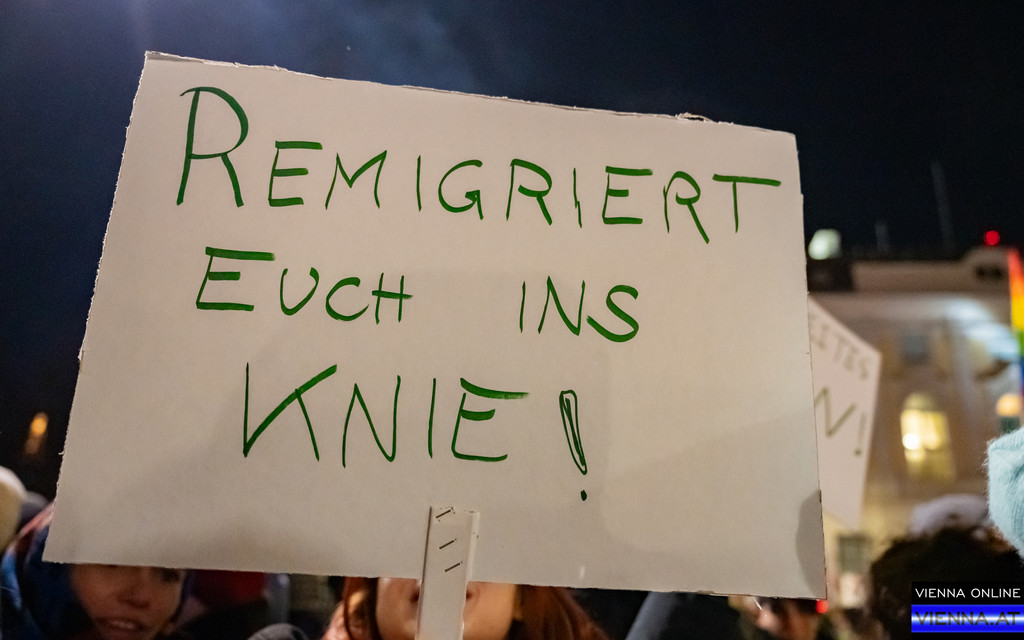 REMIGRIERT
EUCH INS
KNIE!
VIENNA ONLINE
VIENNA.AT